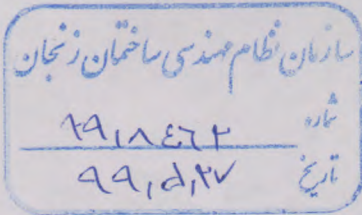 سازمان نظام مهندسی ساختمان زنجان
شماره ۹۹,۸۴۶۲
تاریخ ۹۹,۵,۲۷